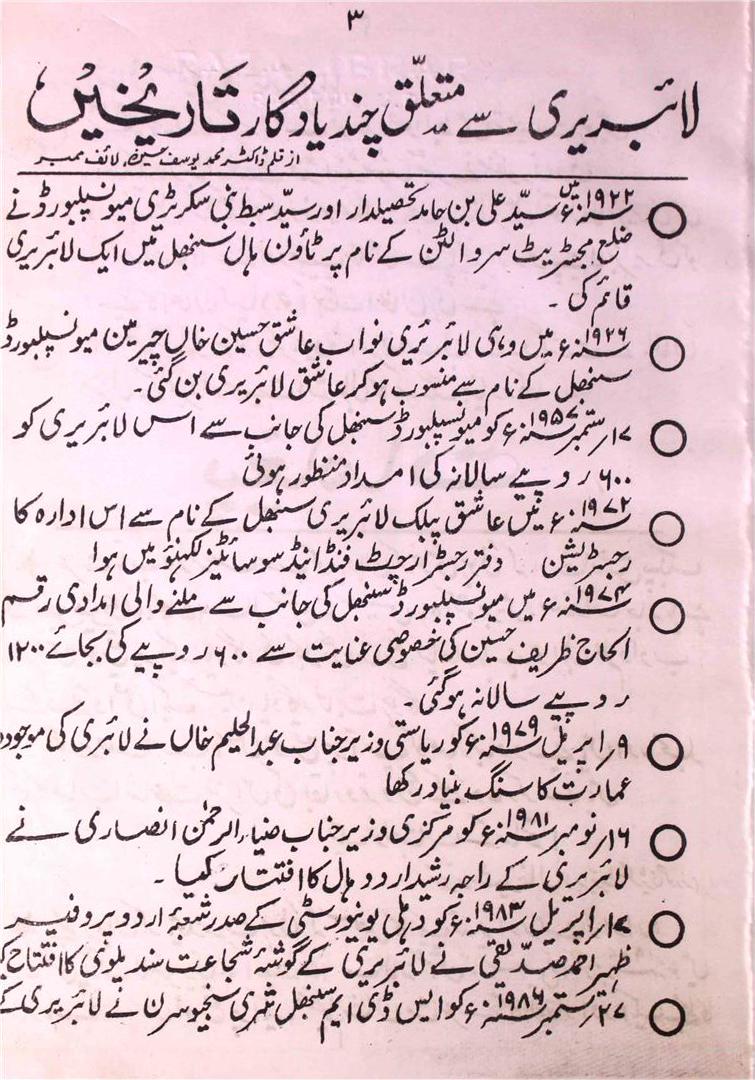 ۳
لائبریری سے متعلق چند یادگار تاریخیں
از قلم ڈاکٹر محمد یوسف حمزہ، لائف ممبر
۱۹۲۲ء میں سید علی بن حامد تحصیلدار اور سید سبط نبی سکریٹری میونسپلبورڈ نے
ضلع مجٹریٹ سر والٹن کے نام پر ٹاؤن ہال سنبھل میں ایک لائبریری
قائم کی ۔
۱۹۲۶ء میں وہی لائبریری نواب عاشق حسین خاں چیرمین میونسپلبورڈ
سنبھل کے نام سے منسوب ہو کر عاشق لائبریری بن گئی۔
۱۷؍ ستمبر ۱۹۵۷ء کو میونسپلبورڈ سنبھل کی جانب سے اس لائبریری کو
۶۰۰؍ روپیے سالانہ کی امداد منظور ہوئی
۱۹۷۲ء میں عاشق پبلک لائبریری سنبھل کے نام سے اس ادارہ کا
رجسٹریشن دفتر رجسٹرار چیٹ فنڈ اینڈ سوسائٹیز لکھنؤ میں ہوا
۱۹۷۴ء میں میونسپلبورڈ سنبھل کی جانب سے ملنے والی امدادی رقم
الحاج ظریف حسین کی خصوصی عنایت سے ۶۰۰؍ روپیے کی بجائے ۱۲۰۰
روپیے سالانہ ہوگئی ۔
۹؍ اپریل ۱۹۷۹ء کو ریاستی وزیر جناب عبدالحلیم خاں نے لائبری کی موجودہ
عمارت کا سنگ بنیاد رکھا
۱۶؍ نومبر ۱۹۸۱ء کو مرکزی وزیر جناب ضیاء الرحمٰن انصاری نے
لائبریری کے راجہ رشید اردو ہال کا افتتاح کیا ۔
۱۷؍ اپریل ۱۹۸۳ء کو دہلی یونیورسٹی کے صدر شعبۂ اردو پروفیسر
ظہیر احمد صدیقی نے لائبریری کے گوشۂ شجاعت سندیلوی کا افتتاح
۲۷؍ ستمبر ۱۹۸۶ء کو ایس ڈی ایم سنبھل شری سنجیو سرن نے لائبریری کے